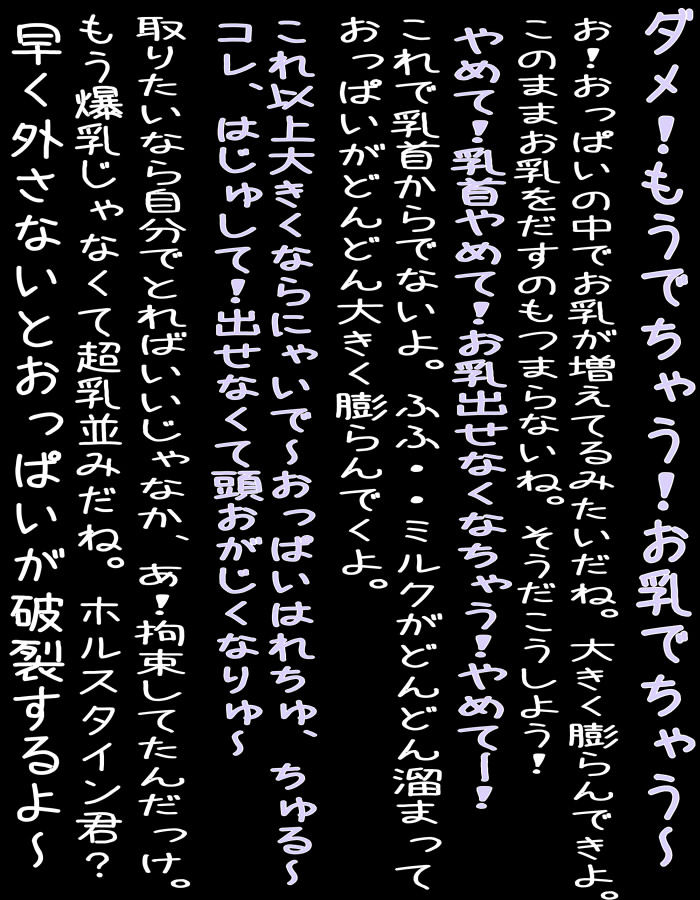 ダメ！もうでちゃう！お乳でちゃう～
お！おっぱいの中でお乳が増えてるみたいだね。大きく膨らんできよ。
このままお乳をだすのもつまらないね。そうだこうしよう！
やめて！乳首やめて！お乳出せなくなちゃう！やめてー！
これで乳首からでないよ。ふふ・・ミルクがどんどん溜まって
おっぱいがどんどん大きく膨らんでくよ。
これ以上大きくならにゃいで～おっぱいはれちゅ、ちゅる～
コレ、はじゅして！出せなくて頭おがじくなりゅ～
取りたいなら自分でとればいいじゃなか、あ！拘束してたんだっけ。
もう爆乳じゃなくて超乳並みだね。ホルスタイン君？
早く外さないとおっぱいが破裂するよ～